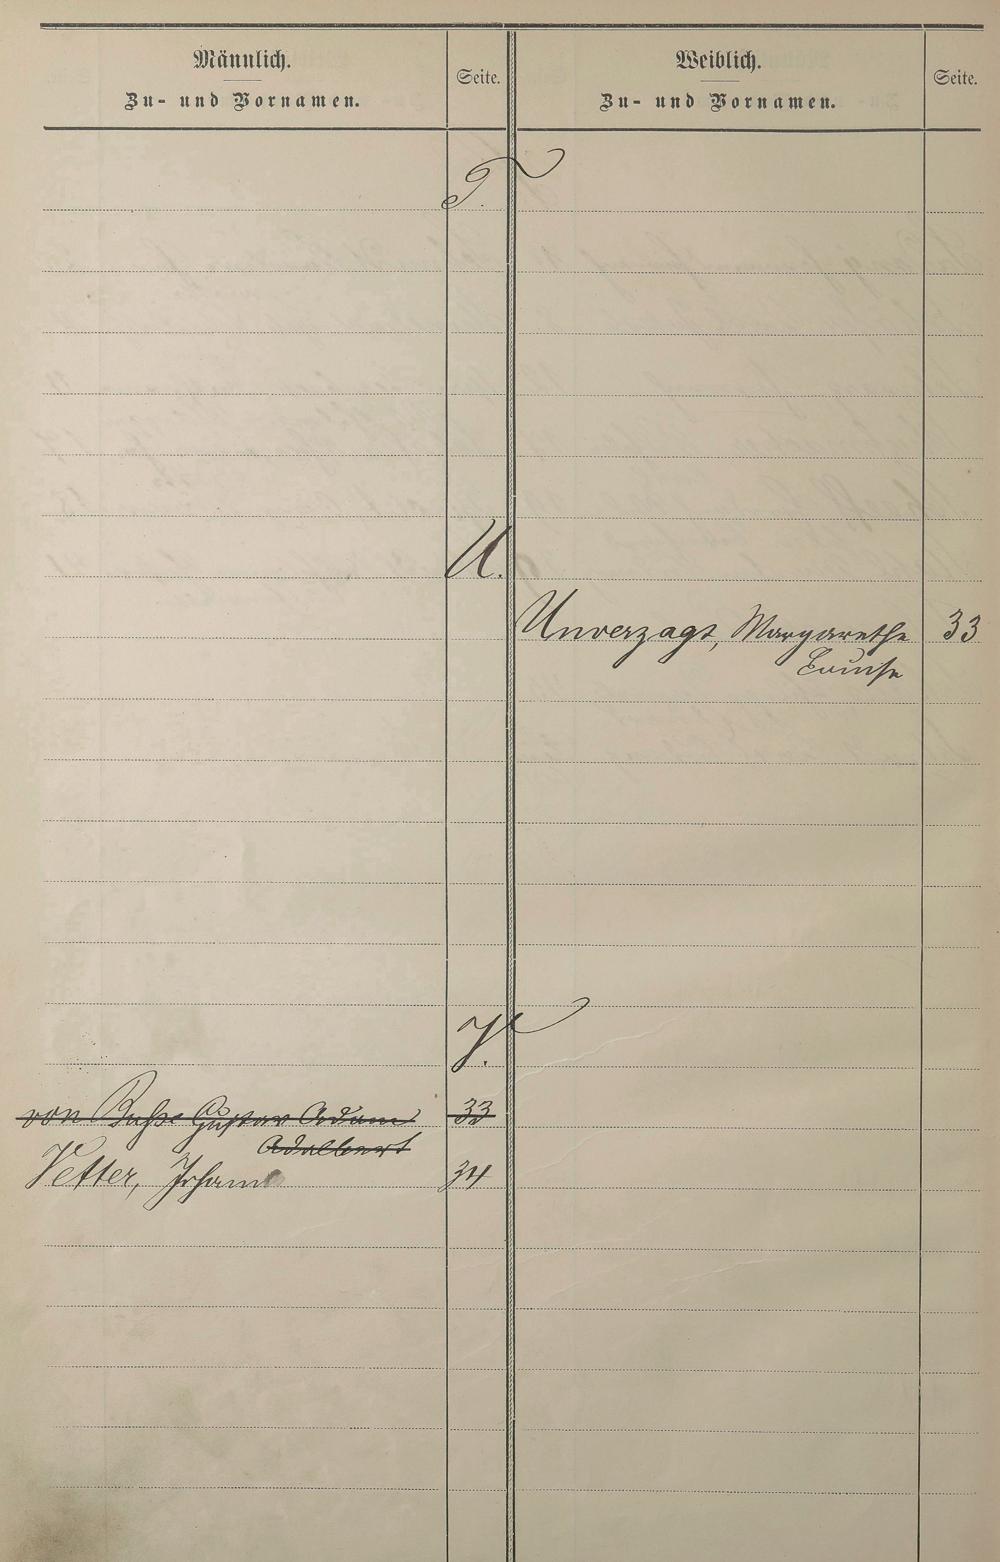 Männlich.
Zu- und Vornamen.
Seite.
Weiblich.
Zu- und Vornamen.
Seite.
T.
U.
Unverzagt, Margarethe 33
Louise
V.
von Buhse Gustav Adam 33
Adalbert
Vetter, Johann 34